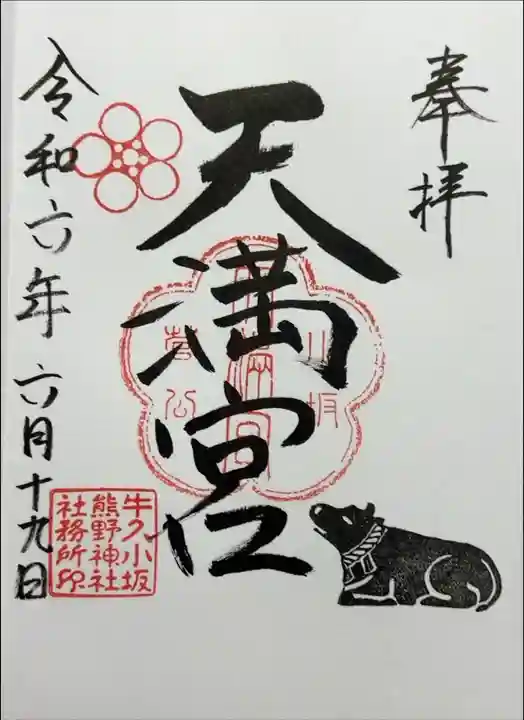 奉拝
天満宮
小坂
菅公
令和六年六月十九日
牛久小坂
熊野神社
社務所印